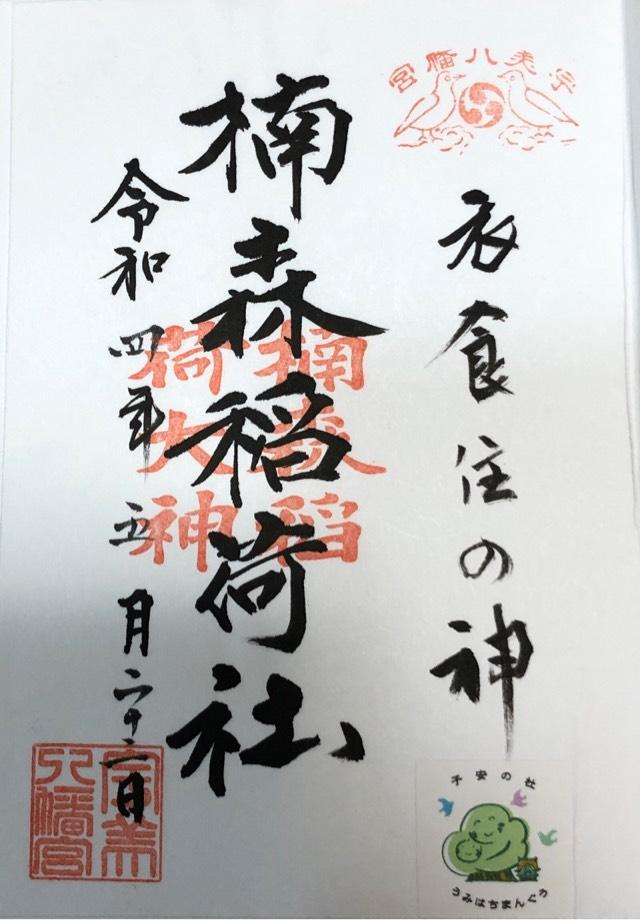 宇美八幡宮
衣食住の神
楠森稲荷社
楠森稲
荷大神
令和四年五月二十二日
宇美
八幡宮
子安の杜
うみはちまんぐう